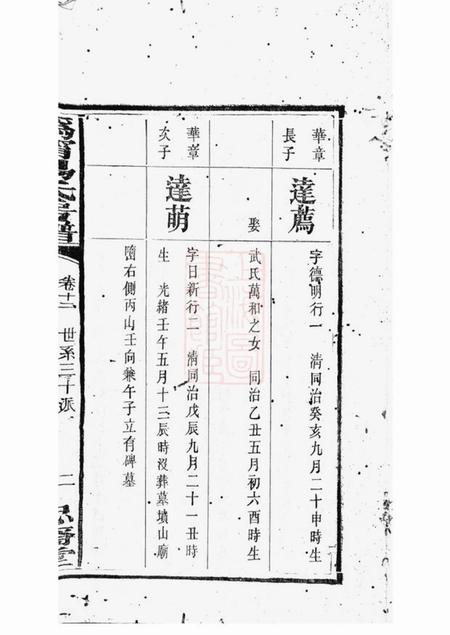 華章
長子
達薦
字德明行一 清同治癸亥九月二十申時生
娶
武氏萬和之女 同治乙丑五月初六酉時生
華章
次子
達萌
字日新行二 清同治戊辰九月二十一丑時
生 光緒壬午五月十三辰時沒葬墓墳山廟
右側丙山壬向兼午子立有碑墓
卷十二 世系三十派
二